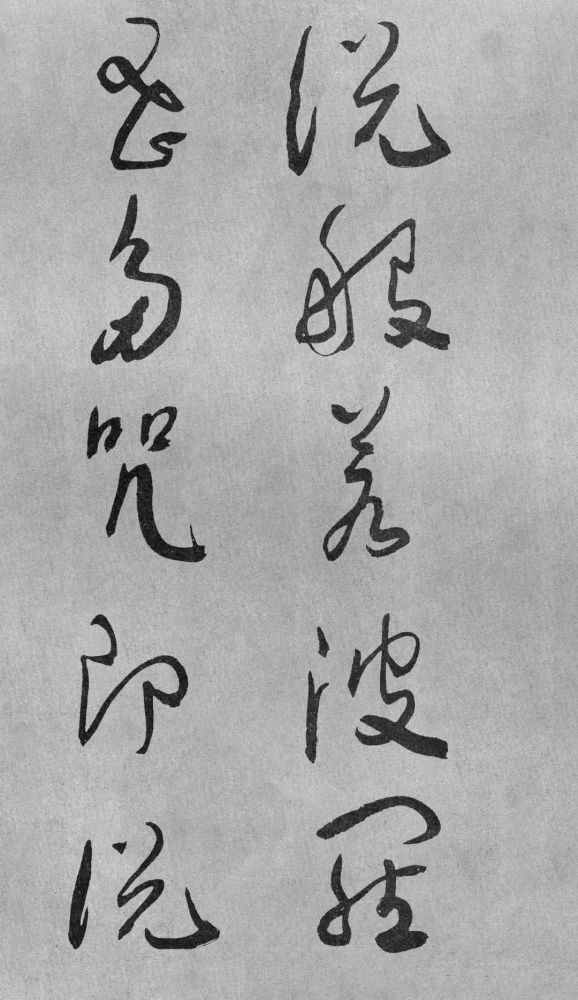 説般若波羅
蜜多咒即説